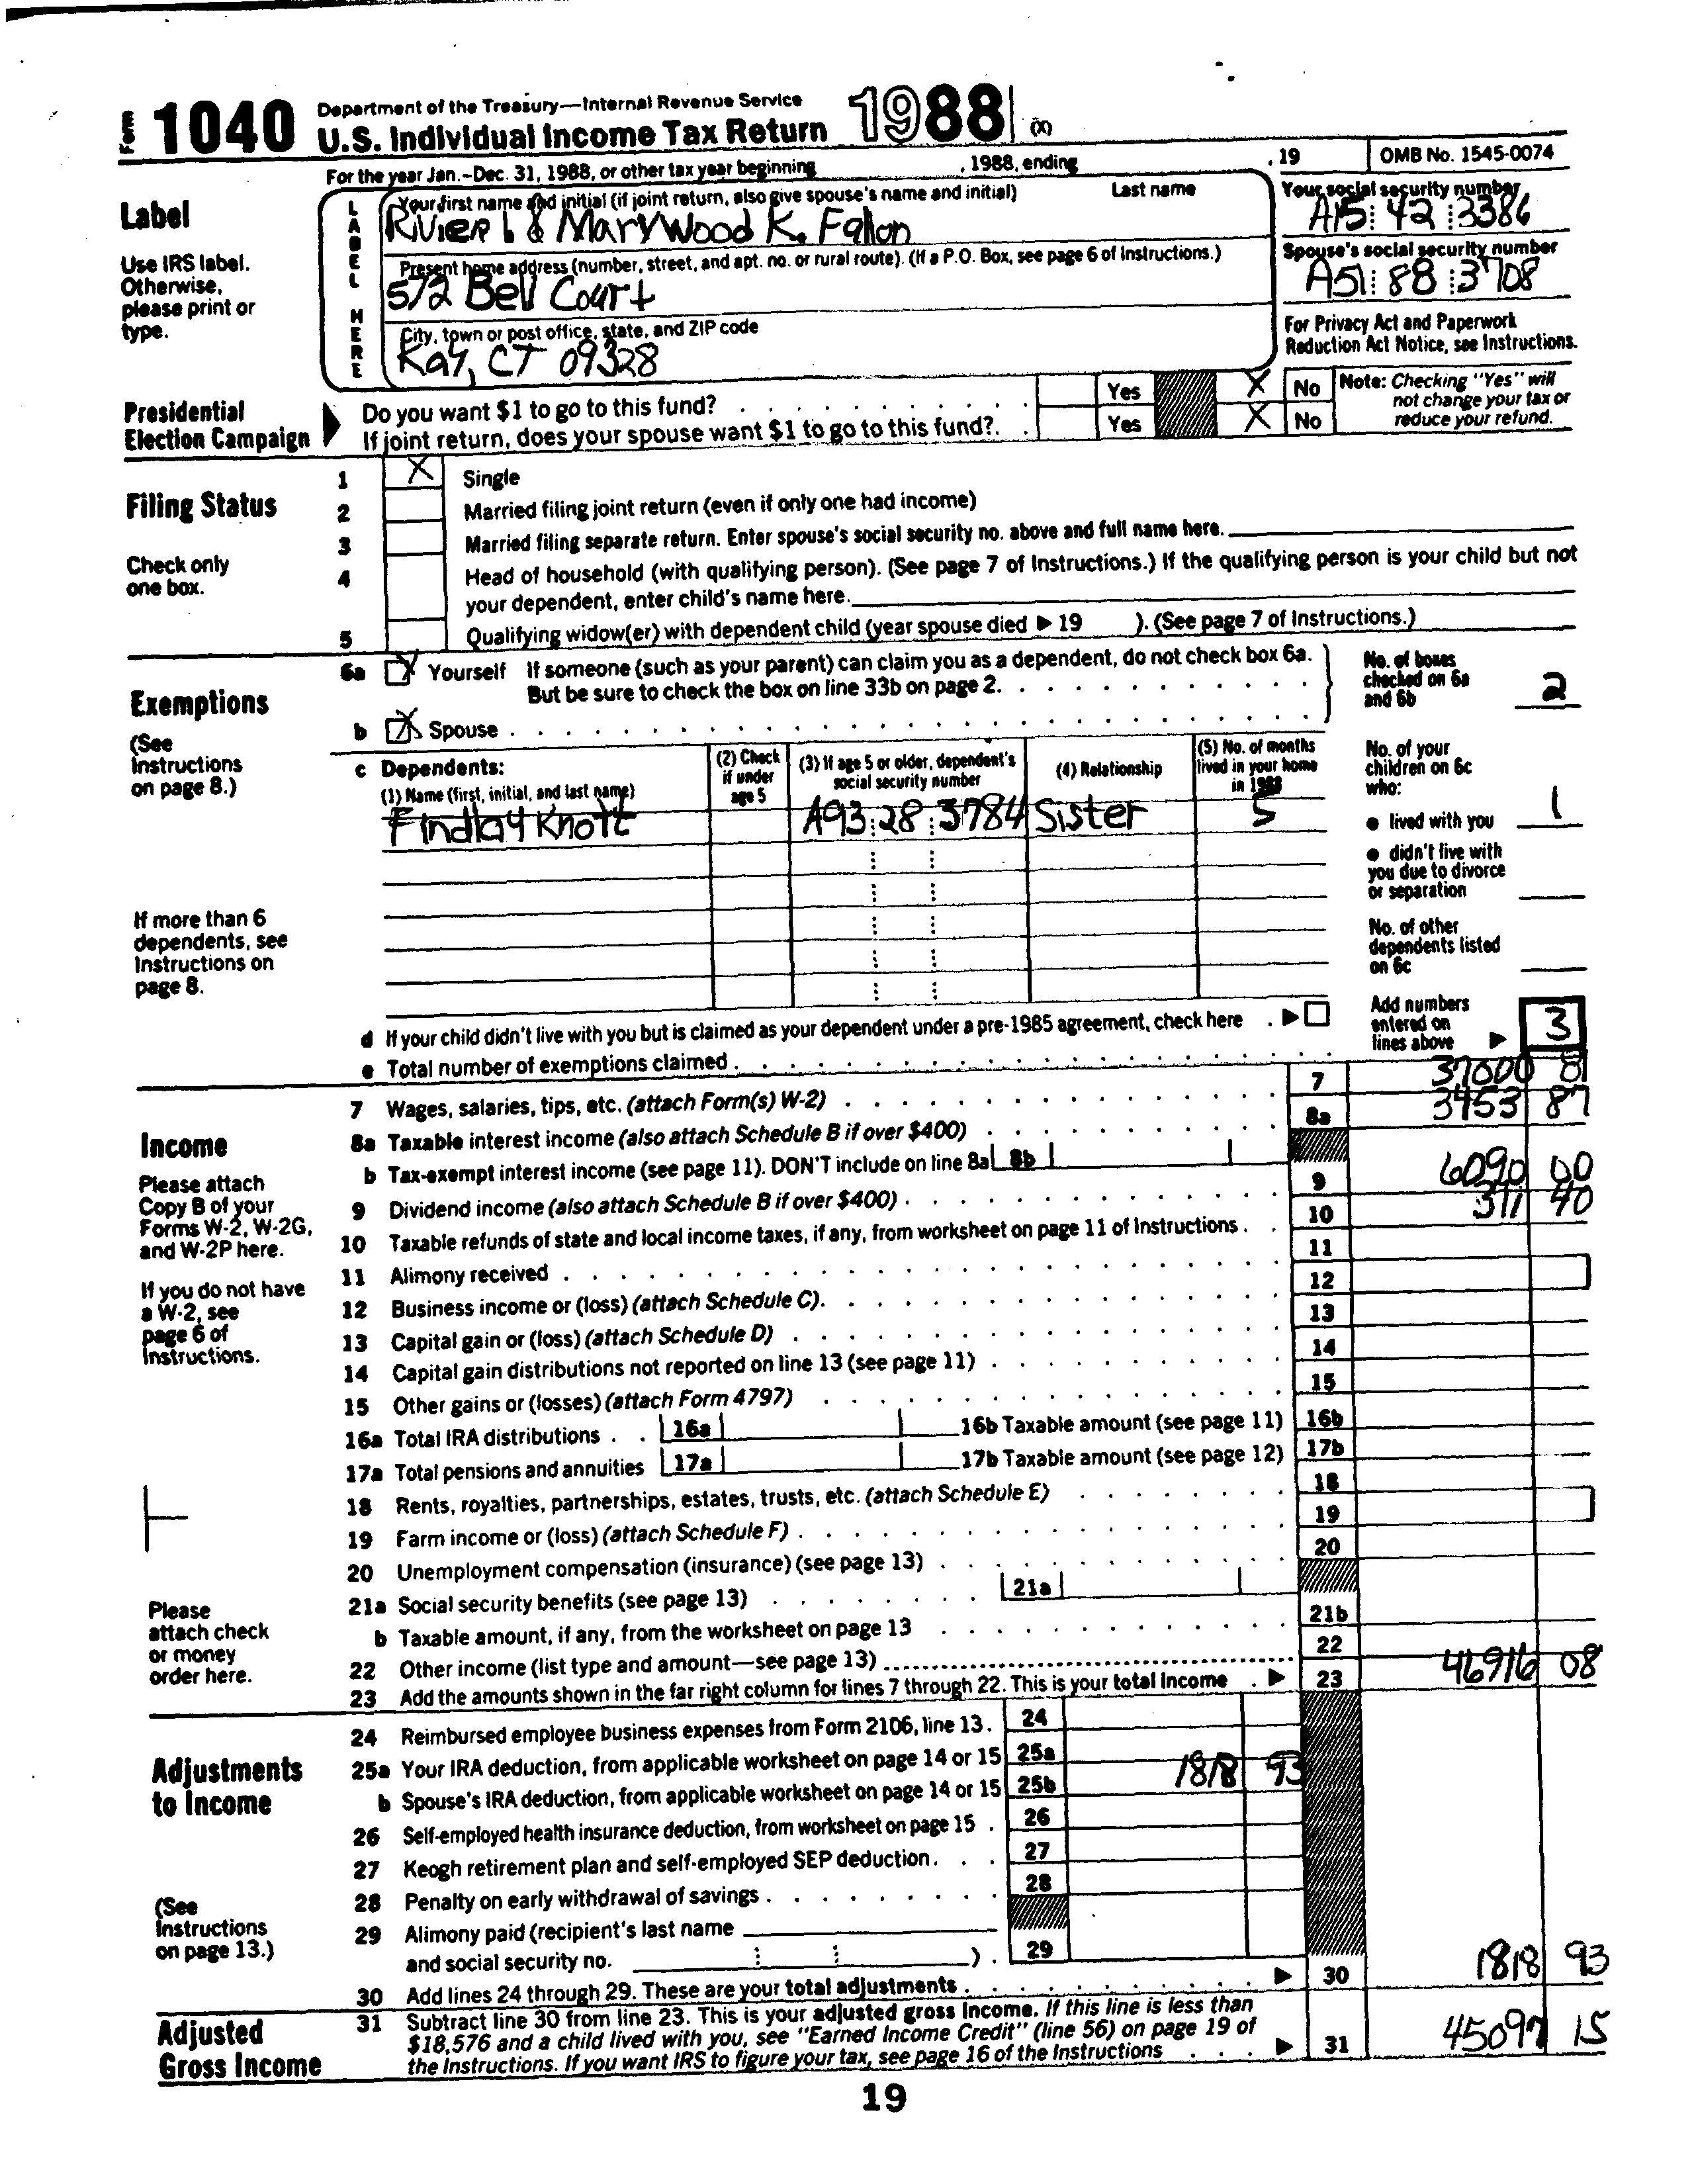 Form 1040 Department of the Treasury—Internal Revenue Service
U.S. Individual Income Tax Return 1988 (X)
For the year Jan.-Dec. 31, 1988, or other tax year beginning , 1988, ending , 19 OMB No. 1545-0074
Label
Use IRS label.
Otherwise,
please print or
type.
LABEL HERE
Your first name and initial (if joint return, also give spouse's name and initial) Last name
Rivier I & Marywood K. Fallon
Your social security number
A15 42 3386
Present home address (number, street, and apt. no. or rural route). (If a P.O. Box, see page 6 of Instructions.)
572 Bell Court
Spouse's social security number
A51 88 3708
City, town or post office, state, and ZIP code
Kay, CT 09328
For Privacy Act and Paperwork
Reduction Act Notice, see Instructions.
Presidential
Election Campaign
Do you want $1 to go to this fund? Yes X No
If joint return, does your spouse want $1 to go to this fund?. Yes X No
Note: Checking "Yes" will
not change your tax or
reduce your refund.
Filing Status
Check only
one box.
1 X Single
2 Married filing joint return (even if only one had income)
3 Married filing separate return. Enter spouse's social security no. above and full name here.
4 Head of household (with qualifying person). (See page 7 of Instructions.) If the qualifying person is your child but not
your dependent, enter child's name here.
5 Qualifying widow(er) with dependent child (year spouse died ▶ 19 ). (See page 7 of Instructions.)
Exemptions
(See
Instructions
on page 8.)
6a X Yourself If someone (such as your parent) can claim you as a dependent, do not check box 6a.
But be sure to check the box on line 33b on page 2.
b X Spouse
No. of boxes
checked on 6a
and 6b 2
c Dependents:
(1) Name (first, initial, and last name)
(2) Check
if under
age 5
(3) If age 5 or older, dependent's
social security number
(4) Relationship
(5) No. of months
lived in your home
in 1988
Findlay Knott A93 28 3784 Sister 5
No. of your
children on 6c
who:
● lived with you 1
● didn't live with
you due to divorce
or separation
No. of other
dependents listed
on 6c
If more than 6
dependents, see
Instructions on
page 8.
d If your child didn't live with you but is claimed as your dependent under a pre-1985 agreement, check here . ▶
e Total number of exemptions claimed
Add numbers
entered on
lines above ▶ 3
Income
Please attach
Copy B of your
Forms W-2, W-2G,
and W-2P here.
If you do not have
a W-2, see
page 6 of
Instructions.
7 Wages, salaries, tips, etc. (attach Form(s) W-2) 7 37060 81
8a Taxable interest income (also attach Schedule B if over $400) 8a 3453 87
b Tax-exempt interest income (see page 11). DON'T include on line 8a 8b
9 Dividend income (also attach Schedule B if over $400) 9 6090 00
10 Taxable refunds of state and local income taxes, if any, from worksheet on page 11 of Instructions 10 311 40
11 Alimony received 11
12 Business income or (loss) (attach Schedule C). 12
13 Capital gain or (loss) (attach Schedule D) 13
14 Capital gain distributions not reported on line 13 (see page 11) 14
15 Other gains or (losses) (attach Form 4797) 15
16a Total IRA distributions 16a 16b Taxable amount (see page 11) 16b
17a Total pensions and annuities 17a 17b Taxable amount (see page 12) 17b
18 Rents, royalties, partnerships, estates, trusts, etc. (attach Schedule E) 18
19 Farm income or (loss) (attach Schedule F) 19
20 Unemployment compensation (insurance) (see page 13) 20
21a Social security benefits (see page 13) 21a
b Taxable amount, if any, from the worksheet on page 13 21b
22 Other income (list type and amount—see page 13) 22
23 Add the amounts shown in the far right column for lines 7 through 22. This is your total income ▶ 23 46916 08
Please
attach check
or money
order here.
Adjustments
to Income
(See
Instructions
on page 13.)
24 Reimbursed employee business expenses from Form 2106, line 13. 24
25a Your IRA deduction, from applicable worksheet on page 14 or 15 25a 1818 93
b Spouse's IRA deduction, from applicable worksheet on page 14 or 15 25b
26 Self-employed health insurance deduction, from worksheet on page 15 26
27 Keogh retirement plan and self-employed SEP deduction. 27
28 Penalty on early withdrawal of savings 28
29 Alimony paid (recipient's last name
and social security no. ) 29
30 Add lines 24 through 29. These are your total adjustments ▶ 30 1818 93
Adjusted
Gross Income
31 Subtract line 30 from line 23. This is your adjusted gross income. If this line is less than
$18,576 and a child lived with you, see "Earned Income Credit" (line 56) on page 19 of
the Instructions. If you want IRS to figure your tax, see page 16 of the Instructions ▶ 31 45097 15
19